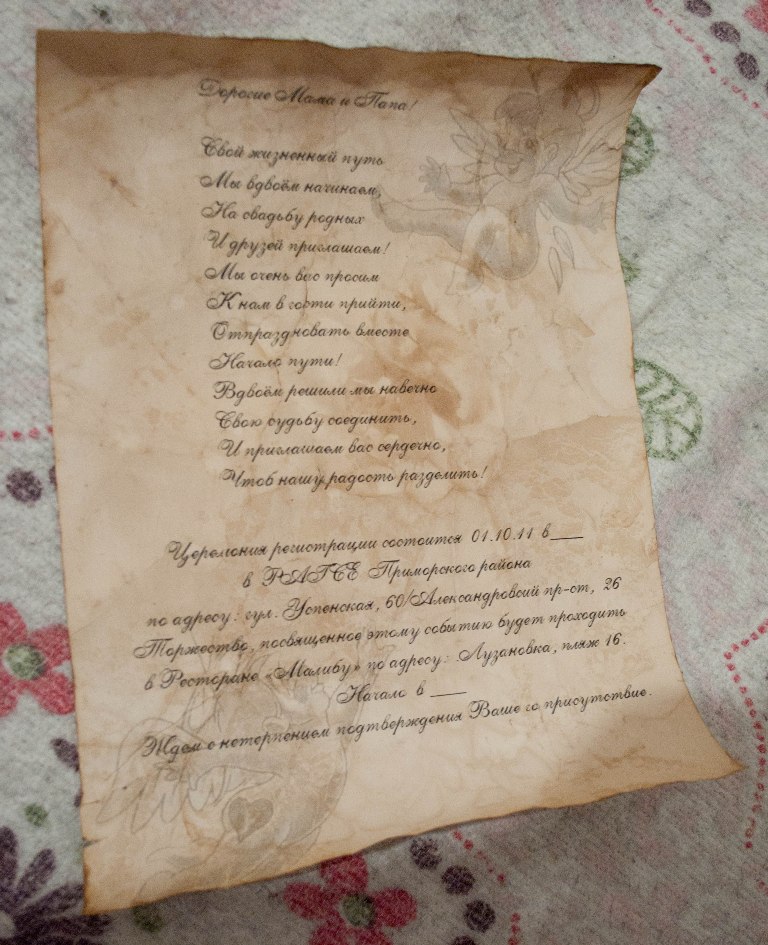 Дорогие Мама и Папа!
Свой жизненный путь
Мы вдвоём начинаем,
На свадьбу родных
И друзей приглашаем!
Мы очень вас просим
К нам в гости прийти,
Отпраздновать вместе
Начало пути!
Вдвоём решили мы навечно
Свою судьбу соединить,
И приглашаем вас сердечно,
Чтоб нашу радость разделить!
Церемония регистрации состоится 01.10.11 в___
в РАГСЕ Приморского района
по адресу: гул. Успенская, 60/Александровсий пр-ст, 26
Торжество, посвященное этому событию будет проходить
в Ресторане «Малибу» по адресу: Лузановка, пляж 16.
Начало в ___
Ждем с нетерпением подтверждения Ваше го присутствие.